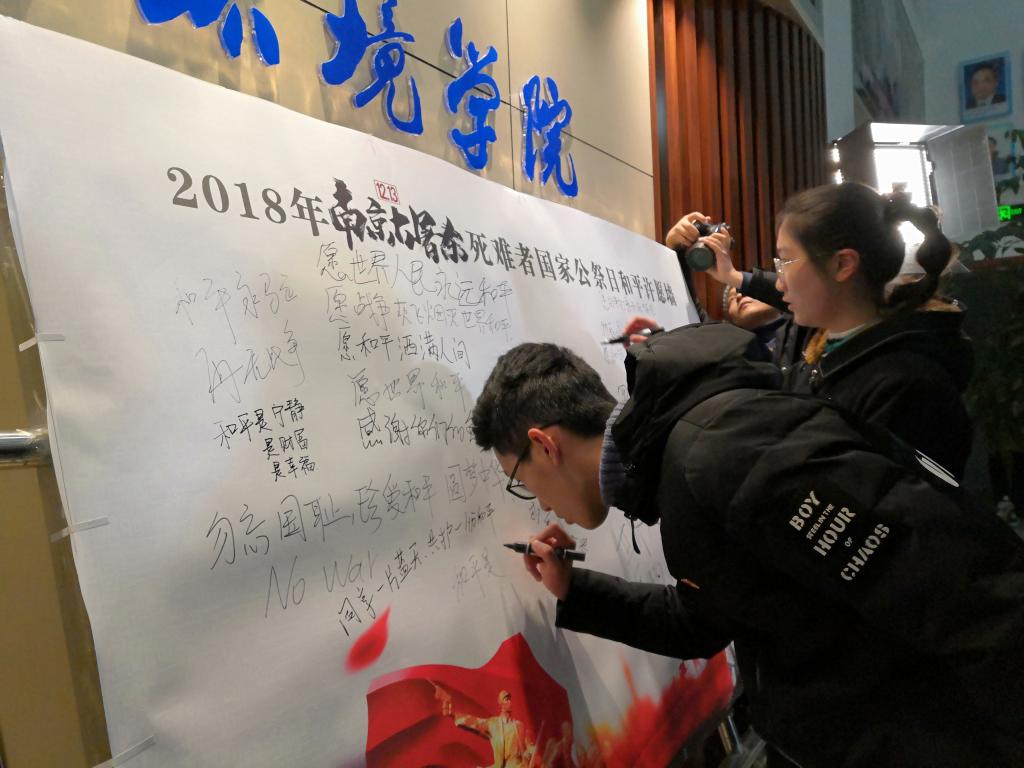 环境学院
12.13
2018年南京大屠杀死难者国家公祭日和平许愿墙
愿世界人民永远和平
愿战争灰飞烟灭世界和平
愿和平洒满人间
愿世界和平
感谢你们的
和平永驻
再无战争
和平是宁静
是财富
是幸福
勿忘国耻,珍爱和平 圆梦中华
No War
同享一片蓝天 共护一份和平
和平是
BOY
STEEL IN THE
HOUR
OF
CHAOS